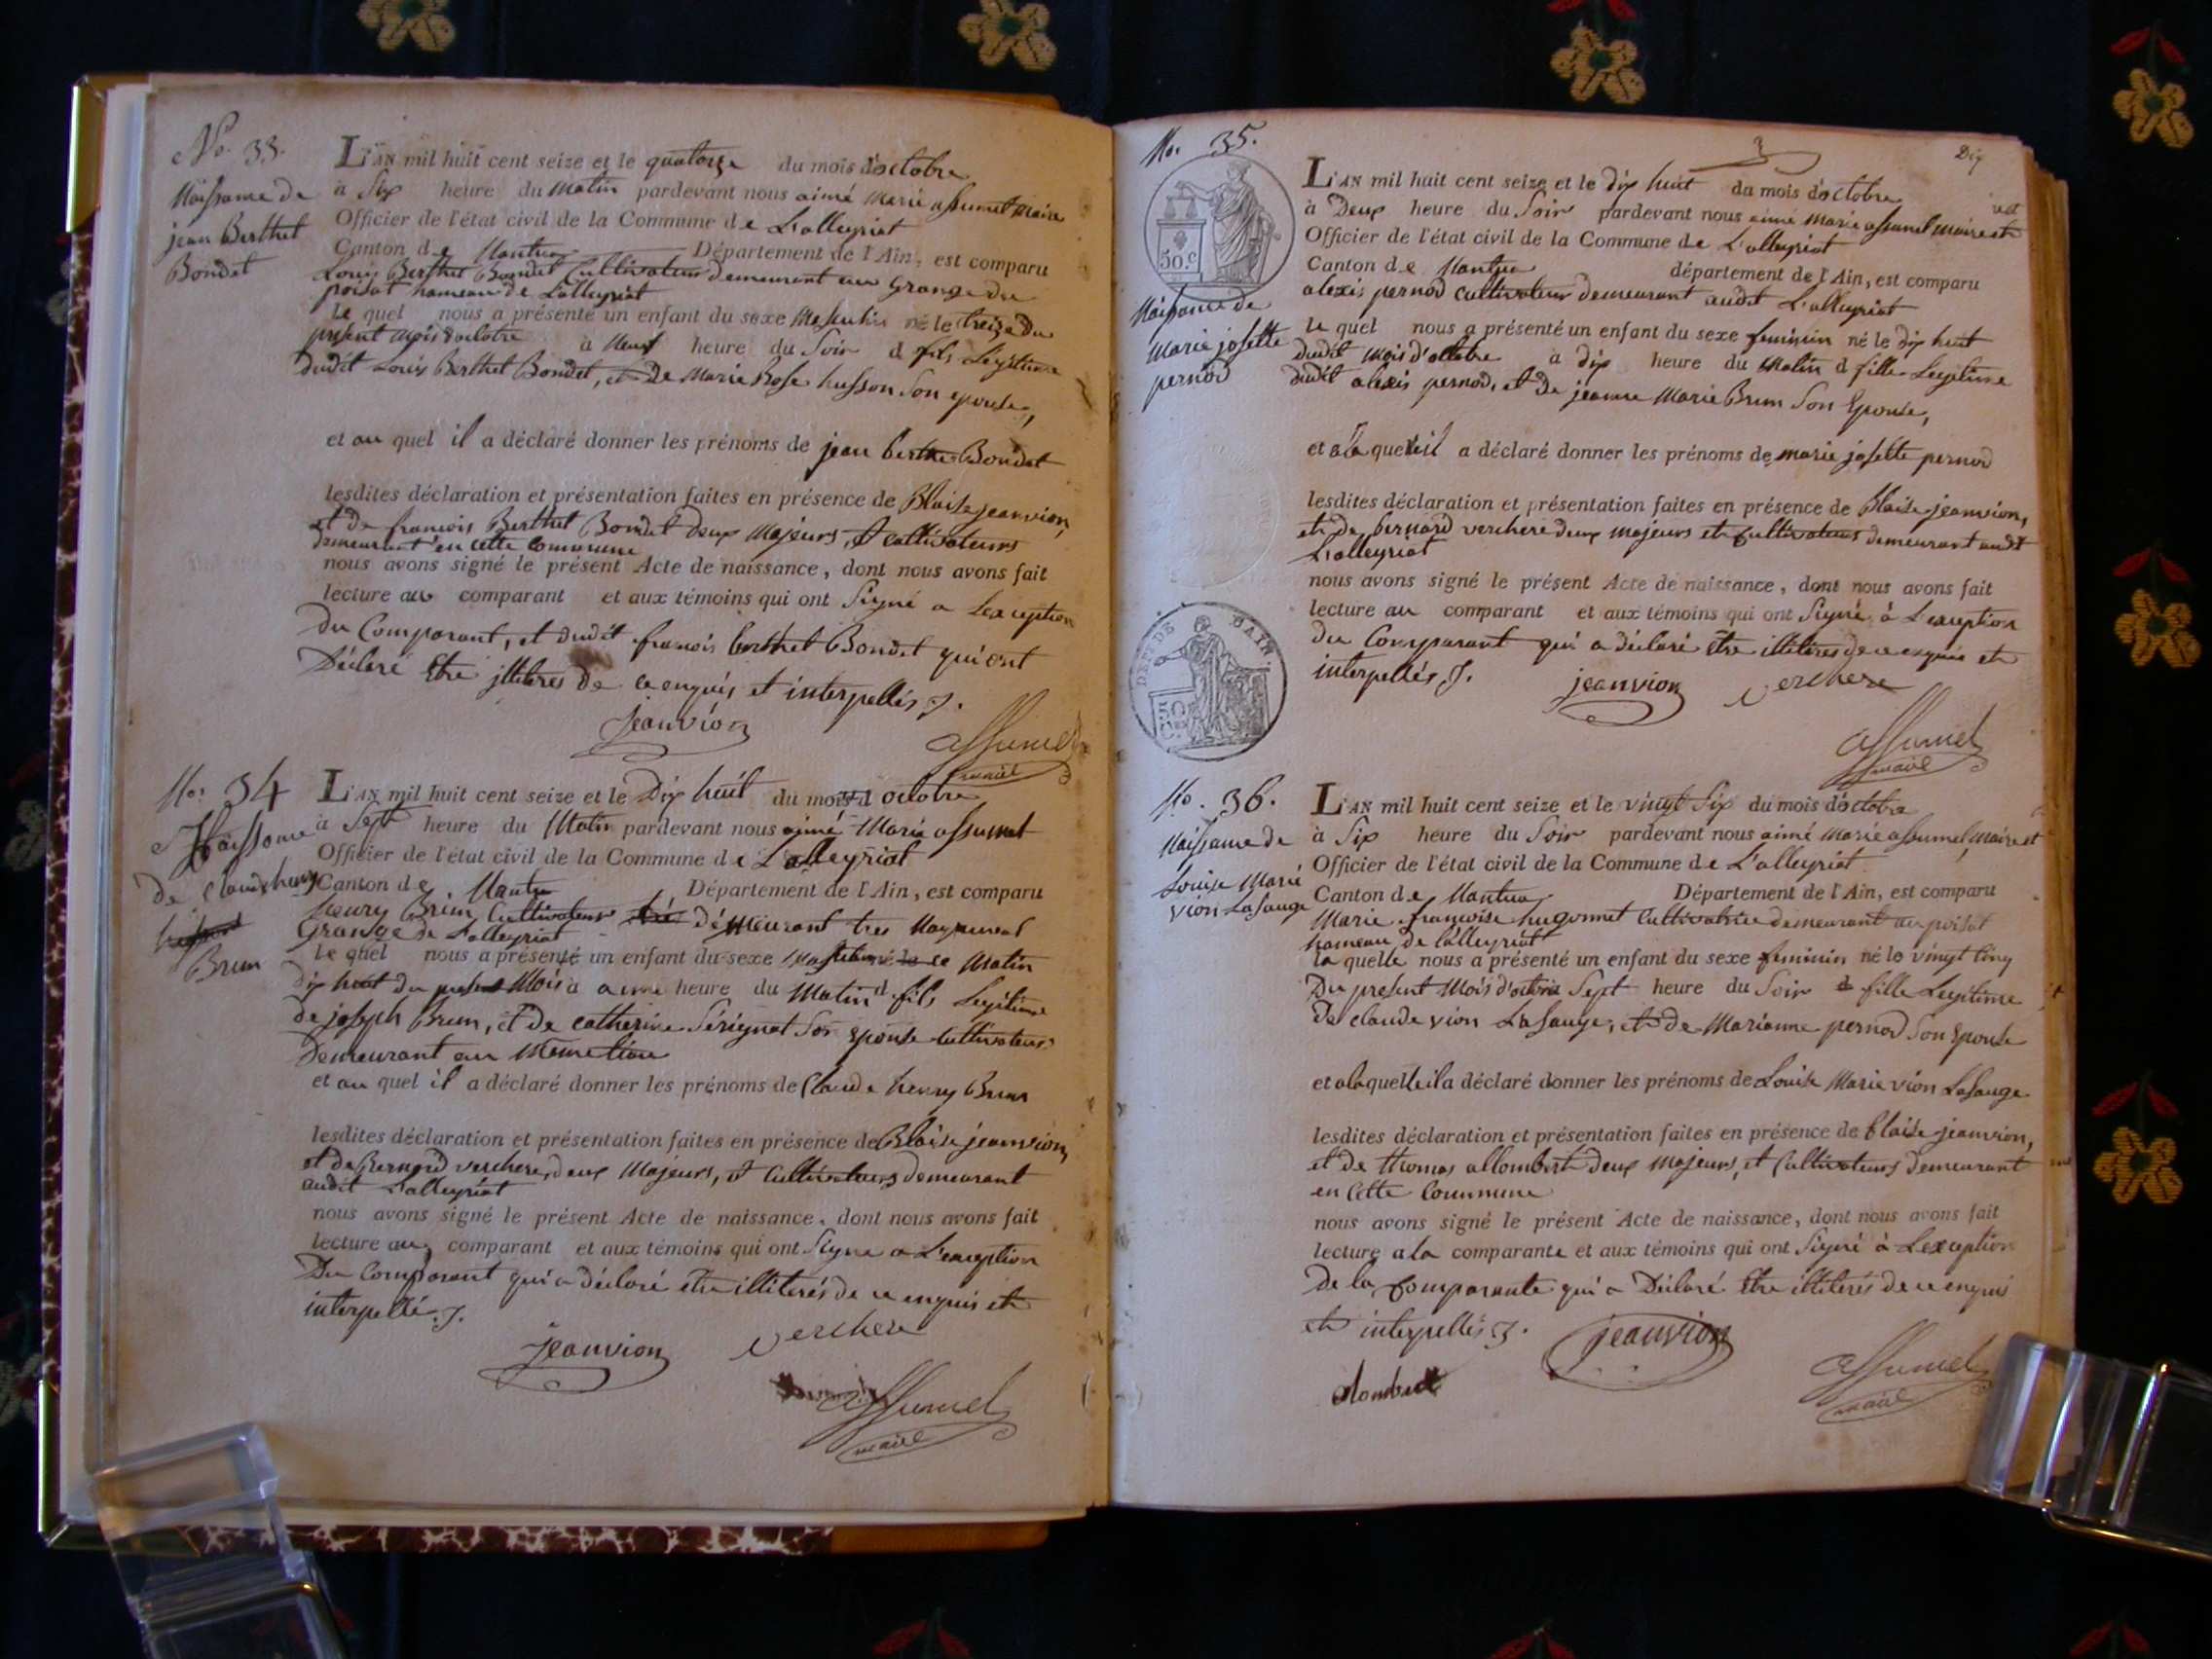 No. 33.
Naissance de
jean Berthet
Bondet
L'AN mil huit cent seize et le quatorze du mois d'octobre
à Six heure du Matin pardevant nous aimé Marie assumel Maire
Officier de l'état civil de la Commune de L'alleyriat
Canton de Nantua Département de l'Ain, est comparu
Louis Berthet Bondet Cultivateur demeurant au Grange du
poisat hameau de L'alleyriat
Le quel nous a présenté un enfant du sexe Masculin né le treize du
présent mois d'octobre à Neuf heure du Soir d fils Legitime
dudit Louis Berthet Bondet, et De Marie Rose husson Son epouse,
et au quel il a déclaré donner les prénoms de jean berthe Bondet
lesdites déclaration et présentation faites en présence de Blaise jeanvion,
et de francois Berthet Bondet Deux Majeurs, et Cultivateurs
demeurant en cette Commune
nous avons signé le présent Acte de naissance, dont nous avons fait
lecture au comparant et aux témoins qui ont Signé a Lexception
du Comparant, et dudit francois berthet Bondet qui ont
Déclaré Etre illiteres De ce enquis, et interpellés J.
jeanvion
assumel
maire
No. 34
Naissance
De Claude henry
Brun
L'AN mil huit cent seize et le Dix huit du mois d octobre
à Sept heure du Matin pardevant nous aimé Marie assumel
Officier de l'état civil de la Commune de L'alleyriat
Canton de Nantua Département de l'Ain, est comparu
henry Brun, Cultivateur Démeurant
Grange de L'alleyriat
Le quel nous a présenté un enfant du sexe Masculin né le ce Matin
dix huit du present Mois à a une heure du Matin d fils Legitime
de joseph Brun, et De catherine Sérignat Son Epouse Cultivateurs
Demeurant au Meme Lieu
et au quel il a déclaré donner les prénoms de Claude henry Brun
lesdites déclaration et présentation faites en présence de Blaise jeanvion,
et de Bernard verchere, deux Majeurs, et Cultivateurs demeurant
audit L'alleyriat
nous avons signé le présent Acte de naissance, dont nous avons fait
lecture au comparant et aux témoins qui ont Signé a L'exception
Du Comparant qui a déclaré etre illiterés de ce enquis et
interpellé. J.
jeanvion verchere
assumel
maire
No. 35.
Dix
50.c
Naissance de
Marie josette
pernod
L'AN mil huit cent seize et le dix huit du mois d'octobre
à Deux heure du Soir pardevant nous aimé Marie assumel Maire et
Officier de l'état civil de la Commune de L'alleyriat
Canton de Nantua département de l'Ain, est comparu
alexis pernod cultivateur demeurant audit L'alleyriat
le quel nous a présenté un enfant du sexe feminin né le dix huit
dudit mois d'octobre à dix heure du Matin d fille Legitime
dudit alexis pernod, et de jeanne Marie Brun Son Epouse,
et a la quelle il a déclaré donner les prénoms de marie josette pernod
lesdites déclaration et présentation faites en présence de Blaise jeanvion,
et de bernard verchere deux majeurs et cultivateurs demeurant audit
L'alleyriat
nous avons signé le présent Acte de naissance, dont nous avons fait
lecture au comparant et aux témoins qui ont Signé, à L'exception
du Comparant qui a déclaré être illiterés de ce enquis et
interpellés J.
DEPT DE L'AIN.
50
C.
jeanvion verchere
assumel
maire
No. 36.
Naissance de
Louise Marie
vion Lasauge
L'AN mil huit cent seize et le vingt Six du mois d'octobre
à Six heure du Soir pardevant nous aimé Marie assumel, Maire et
Officier de l'état civil de la Commune de L'alleyriat
Canton de Nantua Département de l'Ain, est comparu
Marie françoise hugonnet Cultivatrice demeurant au poisat
hameau de L'alleyriat
la quelle nous a présenté un enfant du sexe feminin né le vingt Cinq
Du present Mois d'octobre Sept heure du Soir d fille Legitime
De claude vion Lasauge, et de Marianne pernod Son Epouse
et a laquelle il a déclaré donner les prénoms de Louise Marie vion Lasauge
lesdites déclaration et présentation faites en présence de blaise jeanvion,
et de thomas allombert deux majeurs, et Cultivateurs demeurant
en Cette Commune
nous avons signé le présent Acte de naissance, dont nous avons fait
lecture a la comparante et aux témoins qui ont Signé à Lexception
De la Comparante qui a Déclaré Etre illiterés de ce enquis
et interpellés J.
jeanvion
alombert
assumel
maire